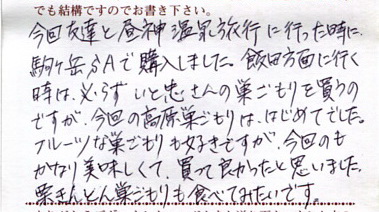 でも結構ですのでお書き下さい。
今回友達と昼神温泉旅行に行った時に、
駒ヶ岳SAで購入しました。飯田方面に行く
時は、必らずいと忠さんの巣ごもりを買うの
ですが、今回の高原巣ごもりは、はじめてでした。
フルーツな巣ごもりも好きですが、今回のも
かなり美味しくて、買って良かったと思いました。
栗きんとん巣ごもりも食べてみたいです。